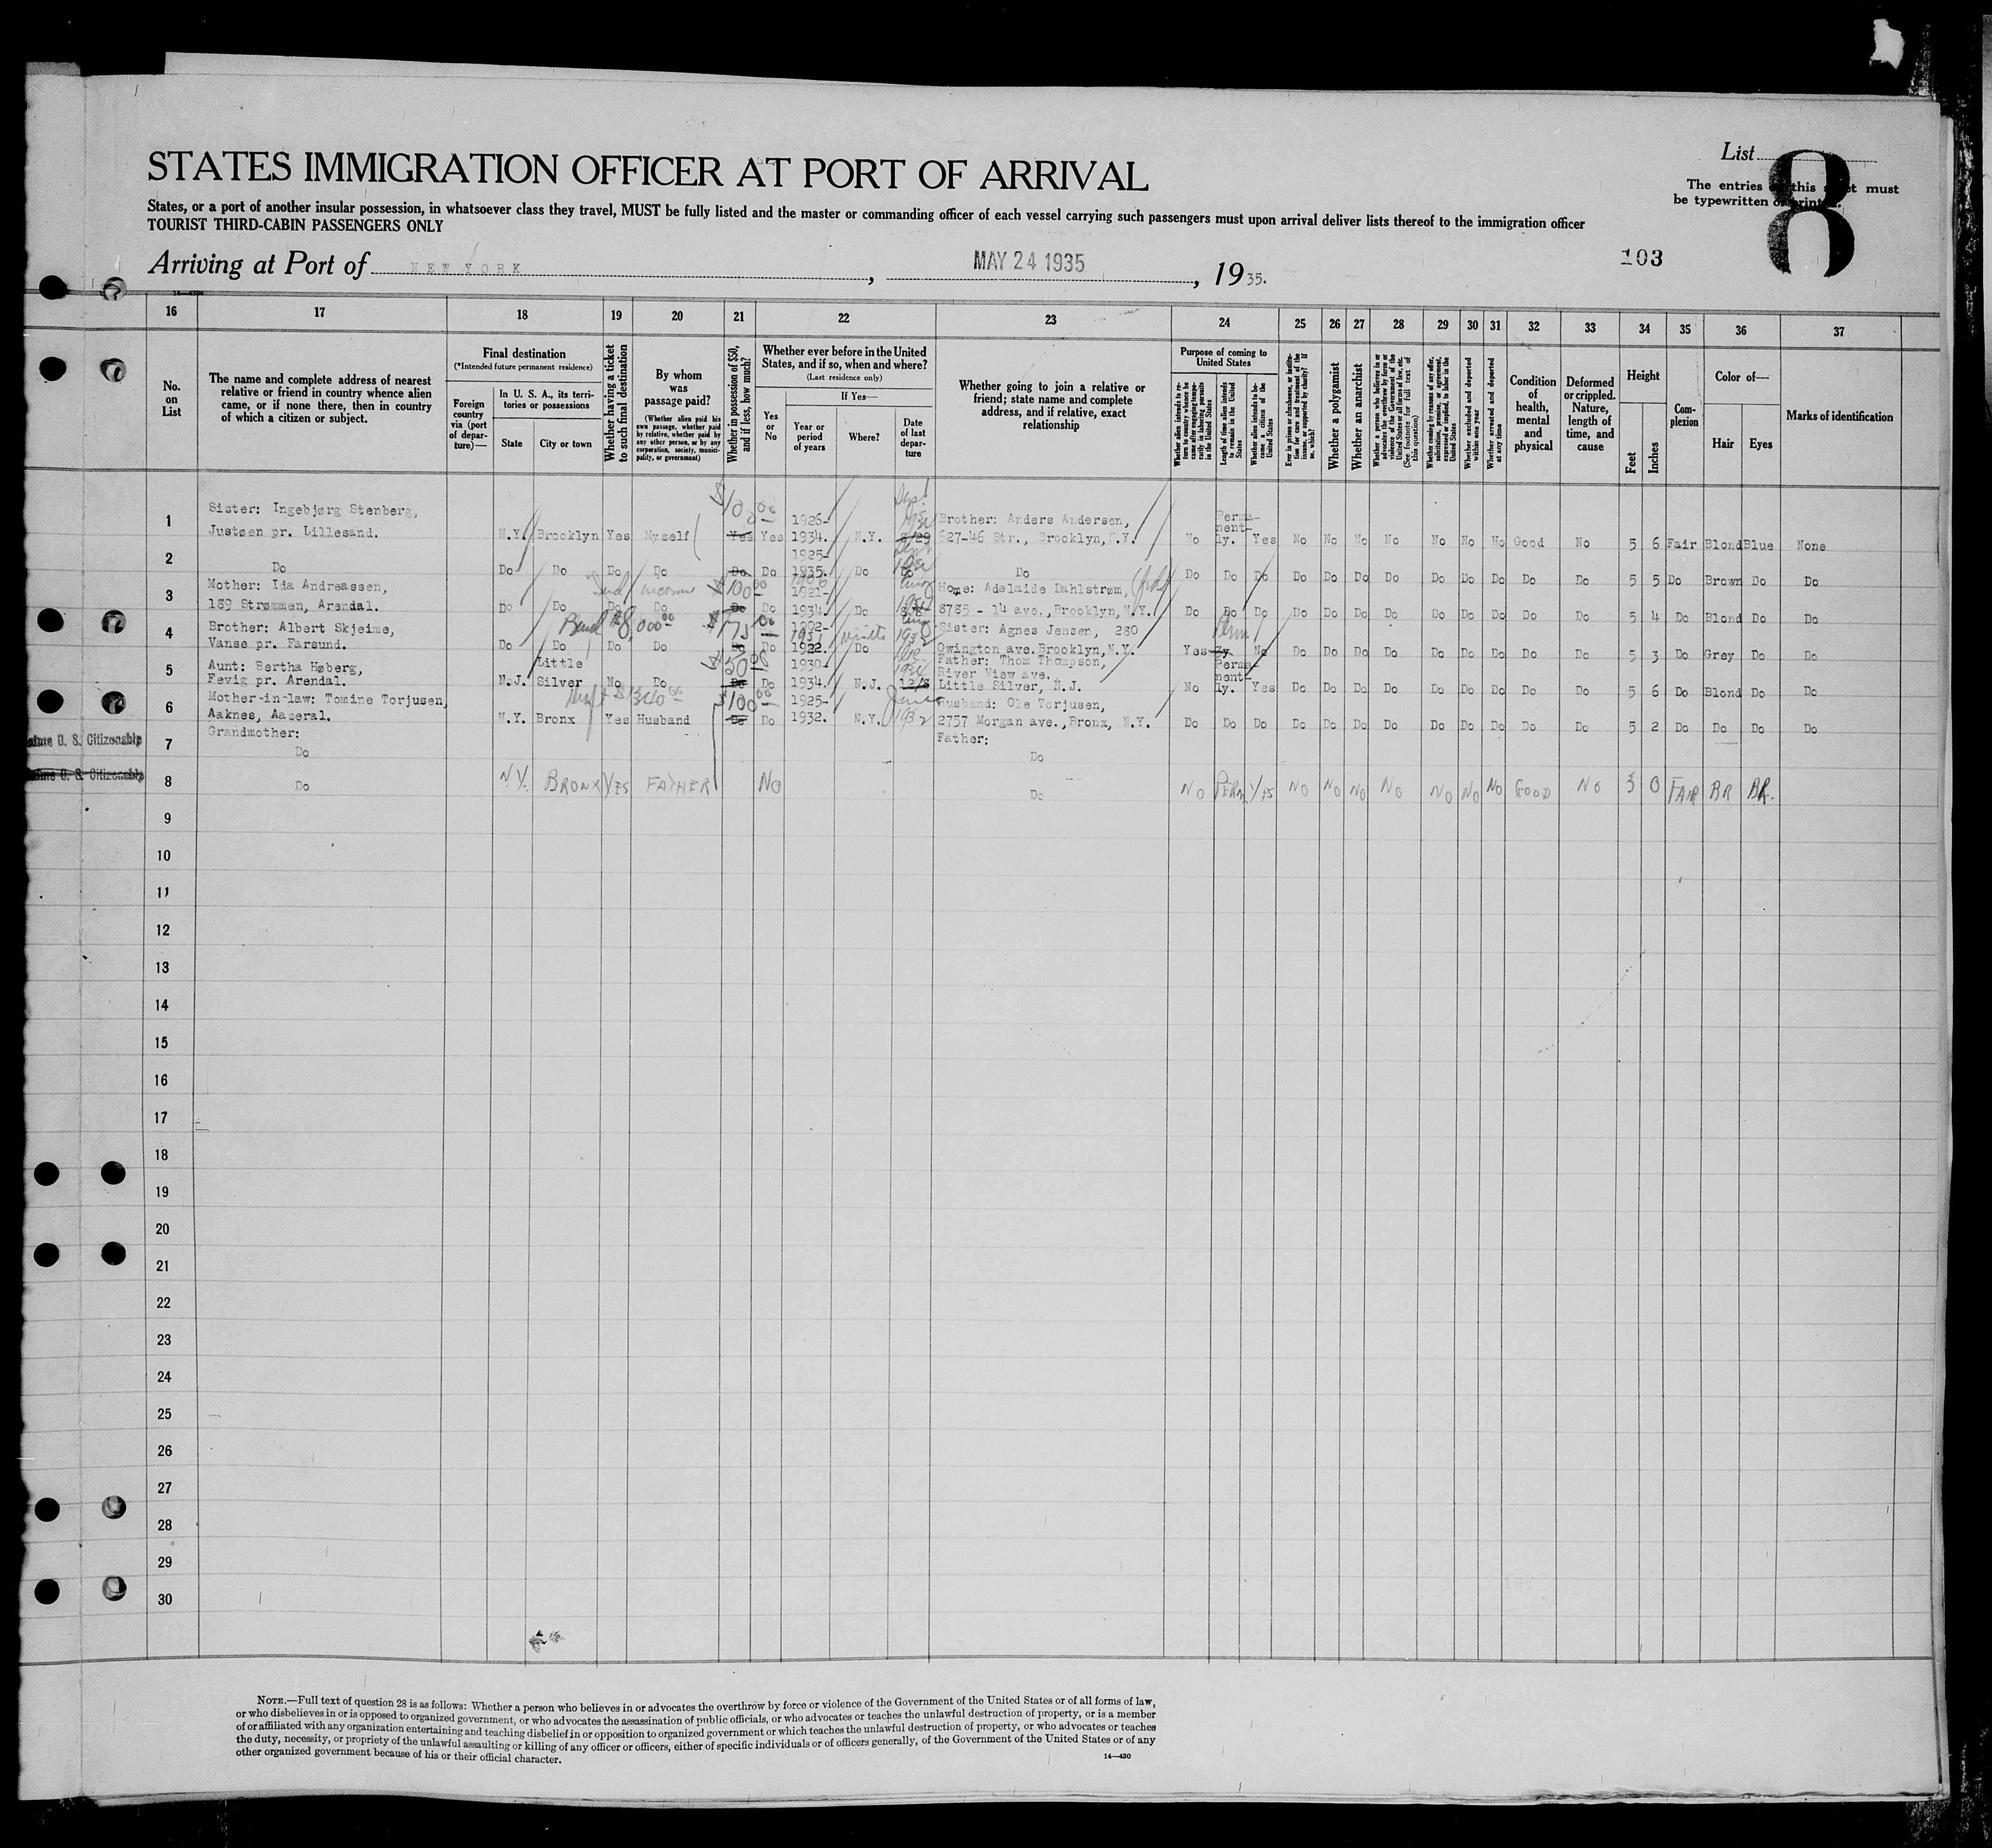 STATES IMMIGRATION OFFICER AT PORT OF ARRIVAL
List
8
The entries this must
be typewritten or
States, or a port of another insular possession, in whatsoever class they travel, MUST be fully listed and the master or commanding officer of each vessel carrying such passengers must upon arrival deliver lists thereof to the immigration officer
TOURIST THIRD-CABIN PASSENGERS ONLY
Arriving at Port of NEW YORK, MAY 24 1935, 1935.
103
16 17 18 19 20 21 22 23 24 25 26 27 28 29 30 31 32 33 34 35 36 37
No. on List
The name and complete address of nearest relative or friend in country whence alien came, or if none there, then in country of which a citizen or subject.
Final destination
(*Intended future permanent residence)
Foreign country via (port of departure)—
In U. S. A., its territories or possessions
State
City or town
Whether having a ticket to such final destination
By whom was passage paid?
(Whether alien paid his own passage, whether paid by relative, whether paid by any other person, or by any corporation, society, municipality, or government)
Whether in possession of $50, and if less, how much?
Whether ever before in the United States, and if so, when and where?
(Last residence only)
Yes or No
If Yes—
Year or period of years
Where?
Date of last departure
Whether going to join a relative or friend; state name and complete address, and if relative, exact relationship
Purpose of coming to United States
Whether alien intends to return to country whence he came after engaging temporarily in laboring pursuits in the United States
Length of time alien intends to remain in the United States
Whether alien intends to become a citizen of the United States
Ever in prison or almshouse, or institution for care and treatment of the insane, or supported by charity? If so, which?
Whether a polygamist
Whether an anarchist
Whether a person who believes in or advocates the overthrow by force or violence of the Government of the United States or all forms of law, etc. (See footnote for full text of this question)
Whether coming by reason of any offer, solicitation, promise, or agreement, expressed or implied, to labor in the United States
Whether excluded and deported within one year
Whether arrested and deported at any time
Condition of health, mental and physical
Deformed or crippled. Nature, length of time, and cause
Height
Feet
Inches
Complexion
Color of—
Hair
Eyes
Marks of identification
$100 00 Sept
1 Sister: Ingebjørg Stenberg, Justøen pr. Lillesand. N.Y. Brooklyn Yes Myself Yes Yes 1926- 1934. N.Y. 8/29 Brother: Anders Andersen, 627-46 Str., Brooklyn, N.Y. No Perma-nent-ly. Yes No No No No No No No Good No 5 6 Fair Blond Blue None
2 Do Do Do Do Do Do Do 1925- 1935. Do Do Do Do Do Do Do Do Do Do Do Do Do Do Do 5 5 Do Brown Do Do
3 Mother: Ida Andreassen, 189 Strømmen, Arendal. Do Do Do Do $100 00 Do Do 1921- 1934. Do Home: Adelaide Dahlstrøm, 8785 - 14 ave., Brooklyn, N.Y. Do Do Do Do Do Do Do Do Do Do Do Do 5 4 Do Blond Do Do
4 Brother: Albert Skjeime, Vanse pr. Farsund. Do Do Do Do Do Do 1902- 1922. Do Sister: Agnes Jensen, 280 Owington ave. Brooklyn, N.Y. Yes Perm No Do Do Do Do Do Do Do Do Do 5 3 Do Grey Do Do
5 Aunt: Bertha Høberg, Fevig pr. Arendal. N.J. Little Silver No Do $50 00 Do Do 1930- 1934. N.J. 12/8 Father: Thom Thompson, River View ave. Little Silver, N.J. No Perma-nent-ly. Yes Do Do Do Do Do Do Do Do Do 5 6 Do Blond Do Do
6 Mother-in-law: Tomine Torjusen, Aaknes, Aaseral. N.Y. Bronx Yes Husband $100 00 Do Do 1925- 1932. N.Y. June 1932 Husband: Ole Torjusen, 2757 Morgan ave., Bronx, N.Y. Do Do Do Do Do Do Do Do Do Do Do Do 5 2 Do Do Do Do
U. S. Citizenship
7 Grandmother: Do Father: Do
U. S. Citizenship
8 Do N.Y. BRONX YES FATHER NO Do NO PERM YES NO NO NO NO NO NO NO GOOD NO 3 0 FAIR BR BR.
9
10
11
12
13
14
15
16
17
18
19
20
21
22
23
24
25
26
27
28
29
30
NOTE.—Full text of question 28 is as follows: Whether a person who believes in or advocates the overthrow by force or violence of the Government of the United States or of all forms of law,
or who disbelieves in or is opposed to organized government, or who advocates the assassination of public officials, or who advocates or teaches the unlawful destruction of property, or is a member
of or affiliated with any organization entertaining and teaching disbelief in or opposition to organized government or which teaches the unlawful destruction of property, or who advocates or teaches
the duty, necessity, or propriety of the unlawful assaulting or killing of any officer or officers, either of specific individuals or of officers generally, of the Government of the United States or of any
other organized government because of his or their official character.
14—430